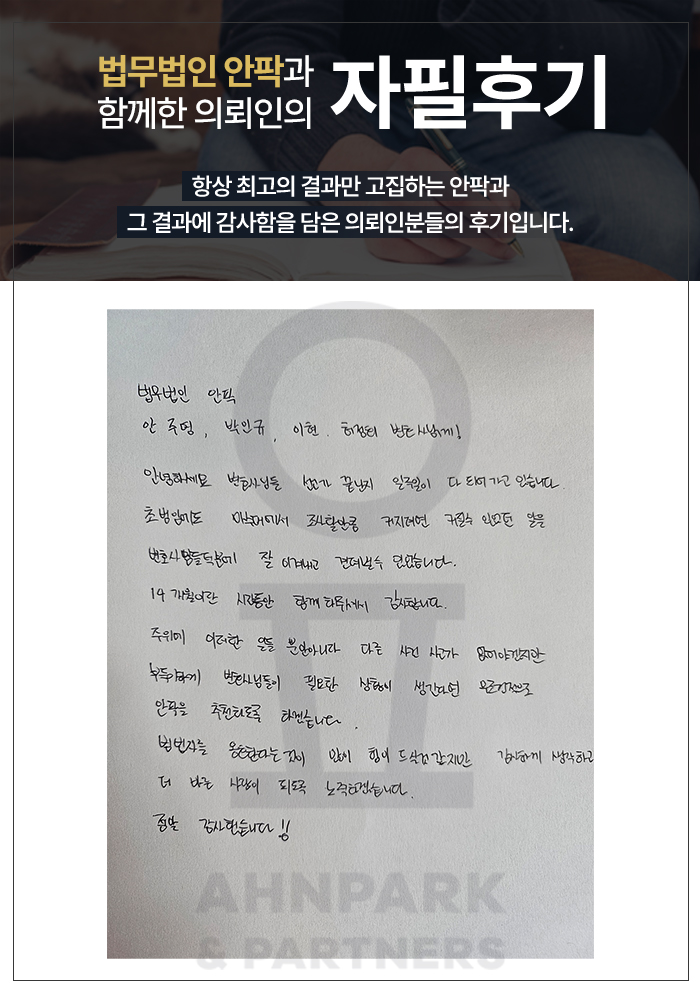 법무법인 안팍과
함께한 의뢰인의
자필후기
항상 최고의 결과만 고집하는 안팍과
그 결과에 감사함을 담은 의뢰인분들의 후기입니다.
법무법인 안팍
안 주영, 박민규, 이현. 허정회 변호사님께!
안녕하세요 변호사님들 선고가 끝난지 일주일이 다 되어가고 있습니다.
초범임에도 커지려면 커질수 있었던 일을
변호사님들덕분에 잘 이겨내고 견뎌낼수 있었습니다.
14개월이란 시간동안 함께 해주셔서 감사합니다.
주위에 이러한 일들 뿐만아니라 다른 사건 사고가 없어야겠지만
부득이하게 변호사님들이 필요한 상황이 생긴다면
안팍을 추천하도록 하겠습니다.
범법자를 옹호한다는것이 많이 힘이 드실것 같지만 감사하게 생각하고
더 바른 사람이 되도록 노력하겠습니다.
정말 감사했습니다!!
AHNPARK
& PARTNERS